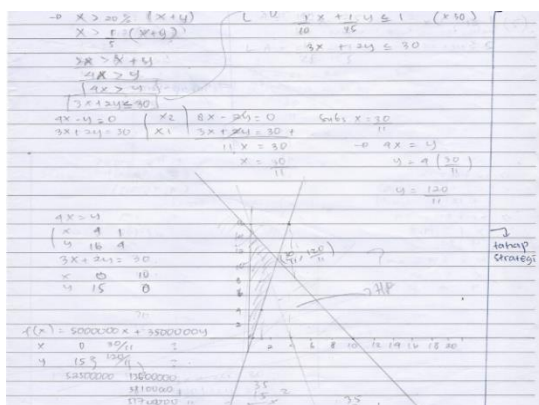 → x > 20% (x+y)
x > 1/5 (x+y)
5x > x + y
4x > y
4x > y
3x + 2y ≤ 30
1/10 x + 1/15 y ≤ 1 (x30)
3x + 2y ≤ 30
4x - y = 0 | x2 | 8x - 2y = 0
3x + 2y = 30 | x1 | 3x + 2y = 30 +
11x = 30
x = 30/11
subs x = 30/11
→ 4x = y
y = 4 (30/11)
y = 120/11
4x = y
x 4 1
y 16 4
3x + 2y = 30
x 0 10
y 15 0
(30/11, 120/11)
?
HP
tahap
strategi
2 4 6 8 10 12 14 16 18 20
f(x) = 5000000x + 3500000y
x 0 30/11
y 15 120/11
52500000
35
15
35